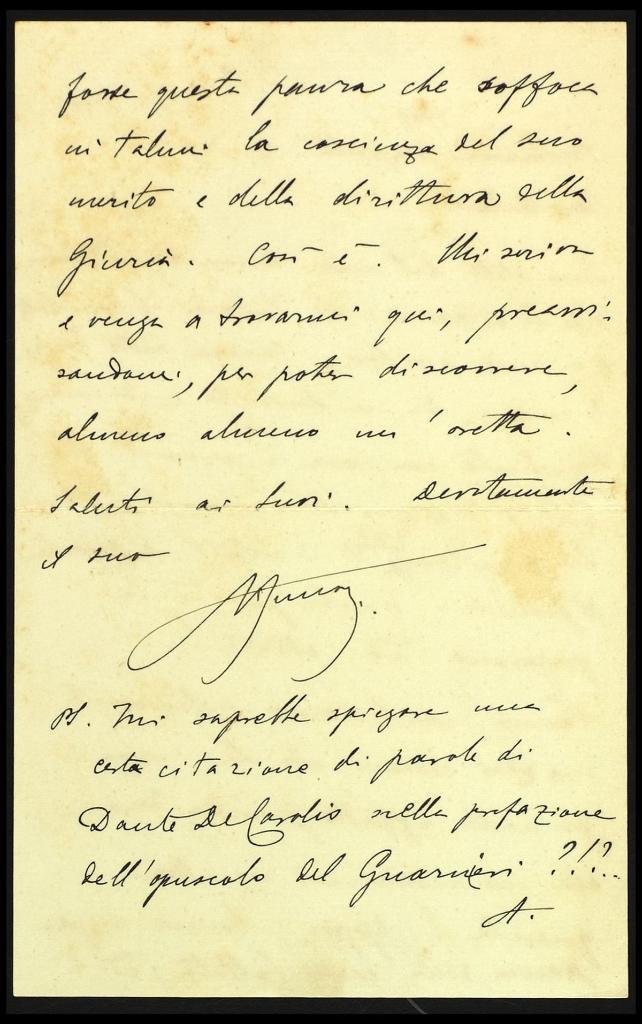 forse questa paura che soffoca
in taluni la coscienza del suo
merito e della dirittura della
Giuria. Così è. Mi scriva
e venga a trovarmi qui, preavvi-
sandomi, per poter discorrere,
almeno almeno un'oretta.
Saluti ai suoi. Devotamente
il suo
PS. Mi saprebbe spiegare una
certa citazione di parole di
Dante De Carolis nella prefazione
dell'opuscolo del Guarnieri ?!?..
A.